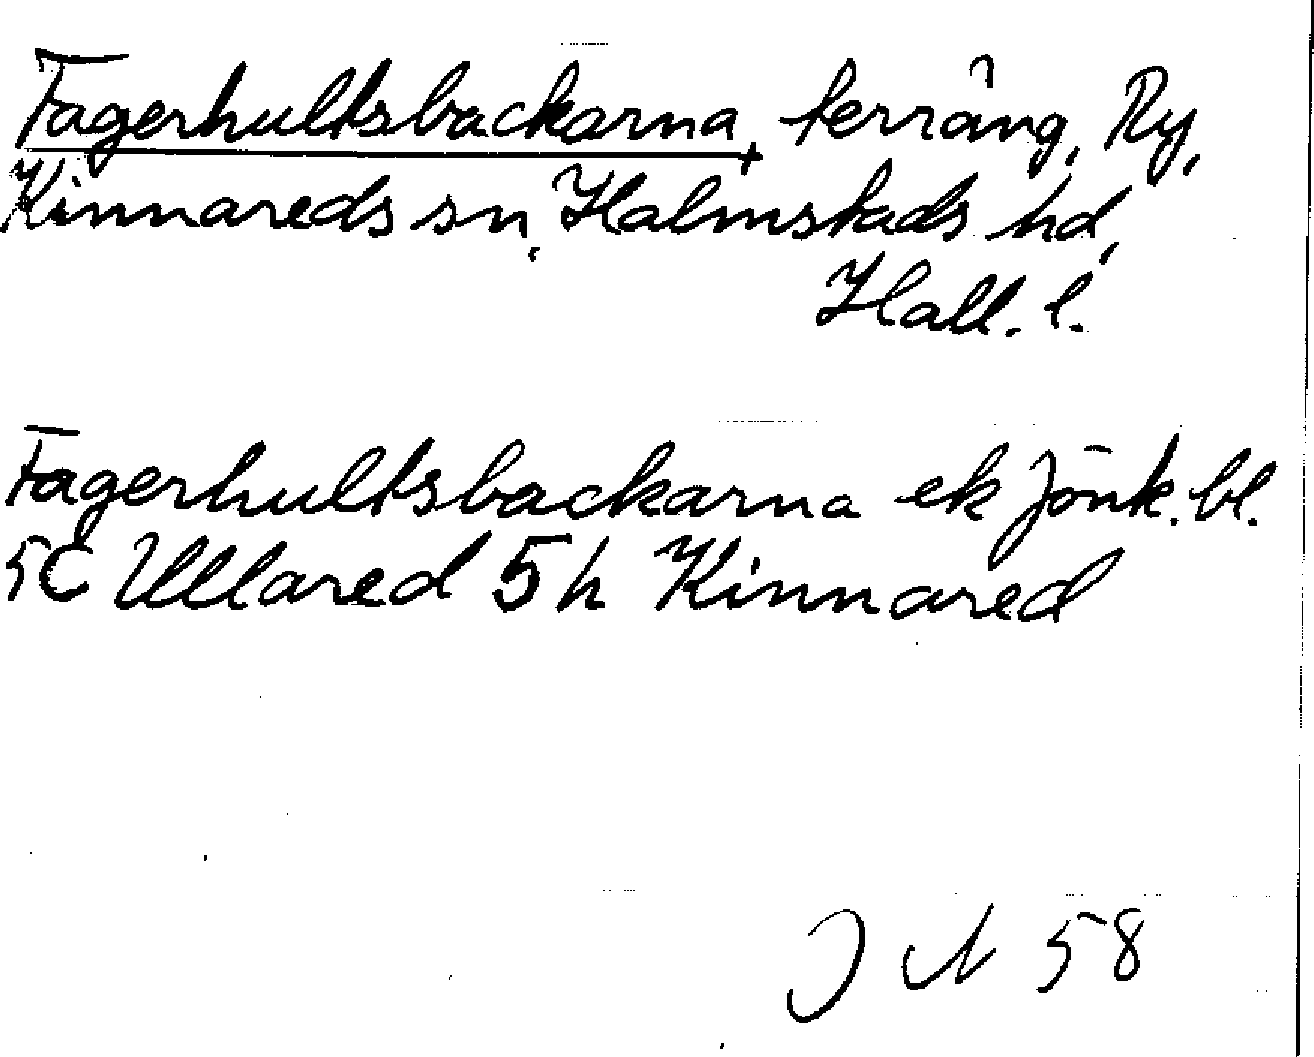 Fagerhultsbackarna, terräng, Ry,
Kinnareds sn, Halmstads hd,
Hall. l.
Fagerhultsbackarna ek Jönk. bl.
5C Ullared 5h Kinnared
58